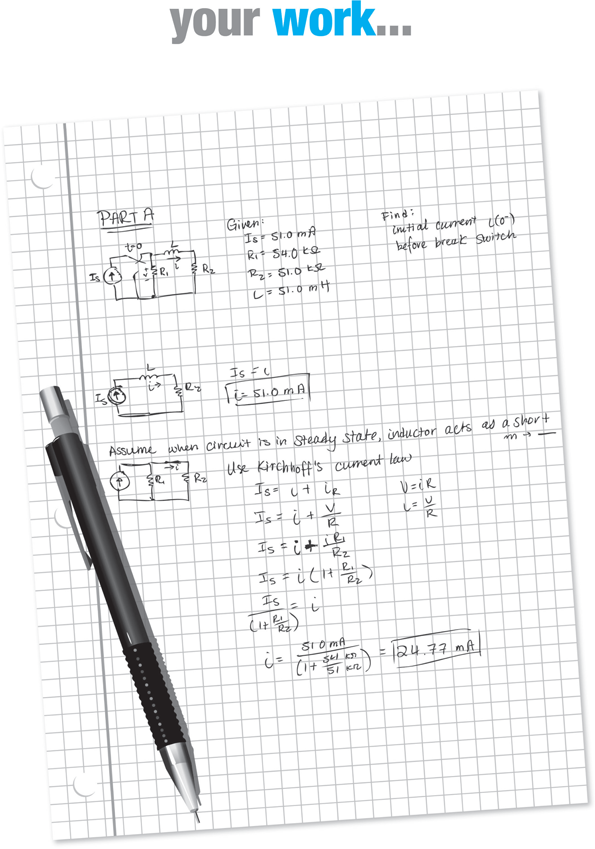 your work...
PART A
Given:
Is = 51.0 mA
R1 = 54.0 kΩ
R2 = 51.0 kΩ
L = 51.0 mH
Find:
initial current i(0⁻)
before break switch
t=0
L
Is
i
v
R1
R2
L
Is
i
R2
Is = i
i = 51.0 mA
Assume when circuit is in steady state, inductor acts as a short
m → —
R1
i
R2
Use Kirchhoff's current law
Is = i + iR
V = iR
Is = i + V/R
i = V/R
Is = i + iR1/R2
Is = i (1 + R1/R2)
Is/(1 + R1/R2) = i
i = 51.0 mA/(1 + 54 kΩ/51 kΩ) = 24.77 mA